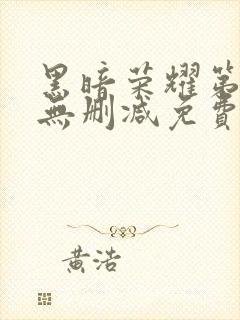 黑暗荣耀第
無删减免費
黄浩